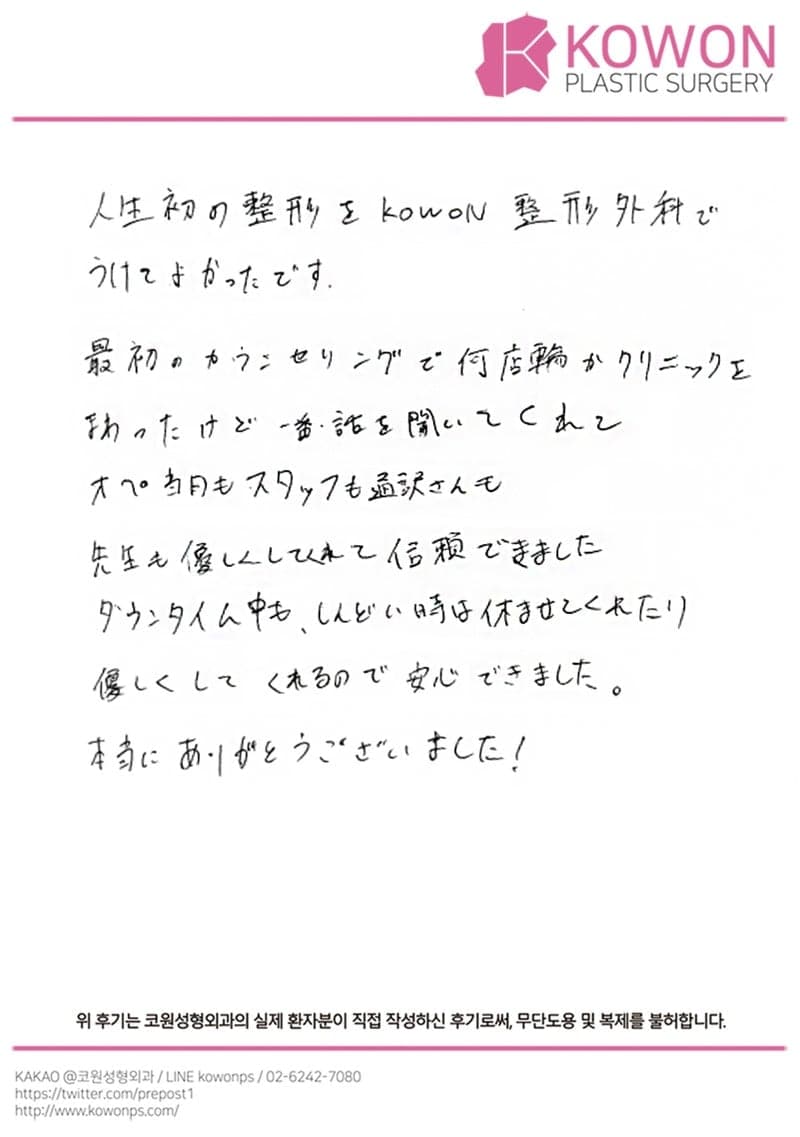 KOWON
PLASTIC SURGERY
人生初の整形を KOWON 整形外科で
うけてよかったです.
最初のカウンセリングで何店輪かクリニックを
まわったけど一番話を聞いてくれて
オペ当日もスタッフも通訳さんも
先生も優しくしてくれて信頼できました
ダウンタイム中も、しんどい時は休ませてくれたり
優しくしてくれるので安心できました。
本当にありがとうございました!
위 후기는 코원성형외과의 실제 환자분이 직접 작성하신 후기로써, 무단도용 및 복제를 불허합니다.
KAKAO @코원성형외과 / LINE kowonps / 02-6242-7080
https://twitter.com/prepost1
http://www.kowonps.com/